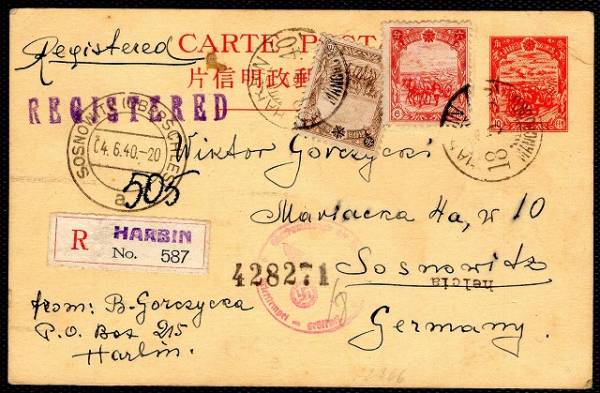 Registered
CARTE POSTALE
片信明政郵
REGISTERED
SOSNOWITZ (OBERSCHLES)
04.6.40.-20
a
505
Wiktor Gorczycki
Mariacka 4a, w 10
Sosnowitz
Germany.
R HARBIN
No. 587
428271
helcia
from: B. Gorczycka
P.O. Box 215
Harbin.